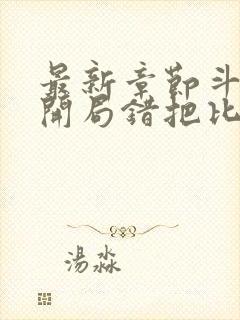 最新章節斗
開局錯把比
湯淼